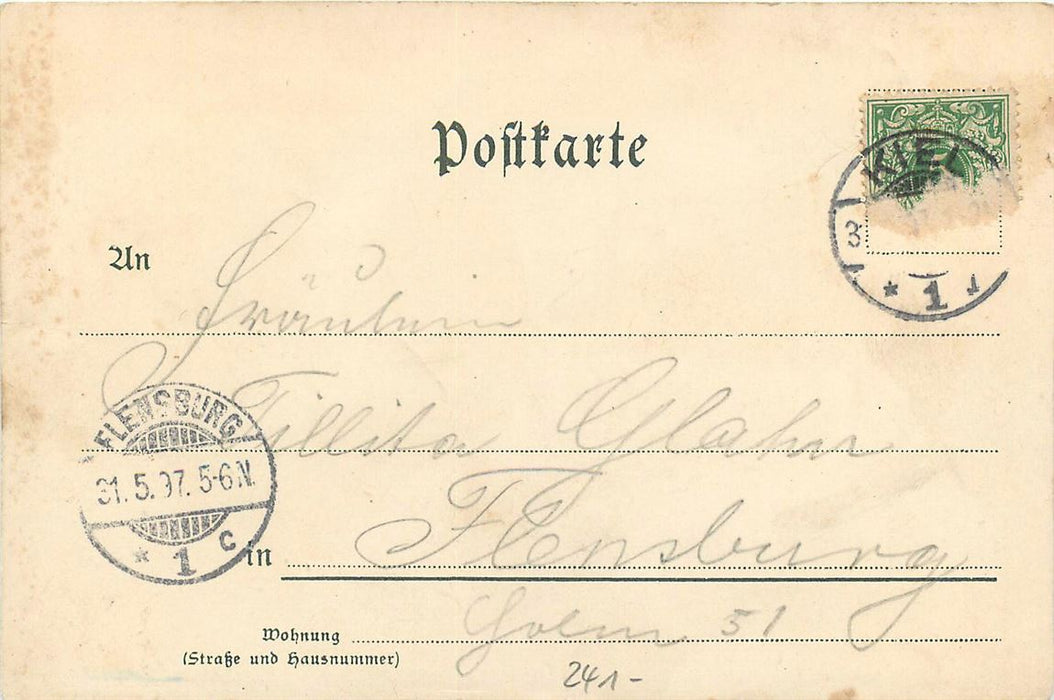 Postkarte
KIEL
3
* 1
An
Fräulein
Tillita Glahn
FLENSBURG
31.5.97. 5-6N.
* 1 c
in Flensburg
Wohnung Holm 51
(Straße und Hausnummer)
241-